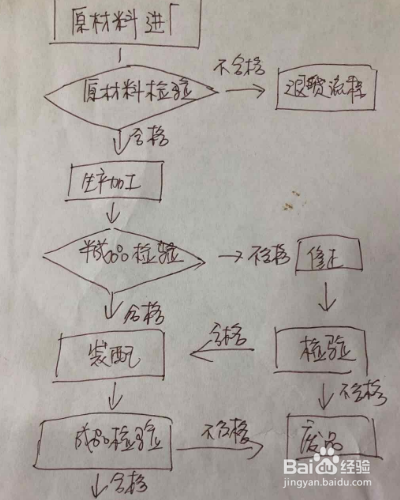 原材料进厂
不合格
原材料检验
退货流程
合格
生产加工
半成品检验
不合格
修正
合格
合格
装配
检验
不合格
成品检验
不合格
废品
合格
Baidu经验
jingyan.baidu.com